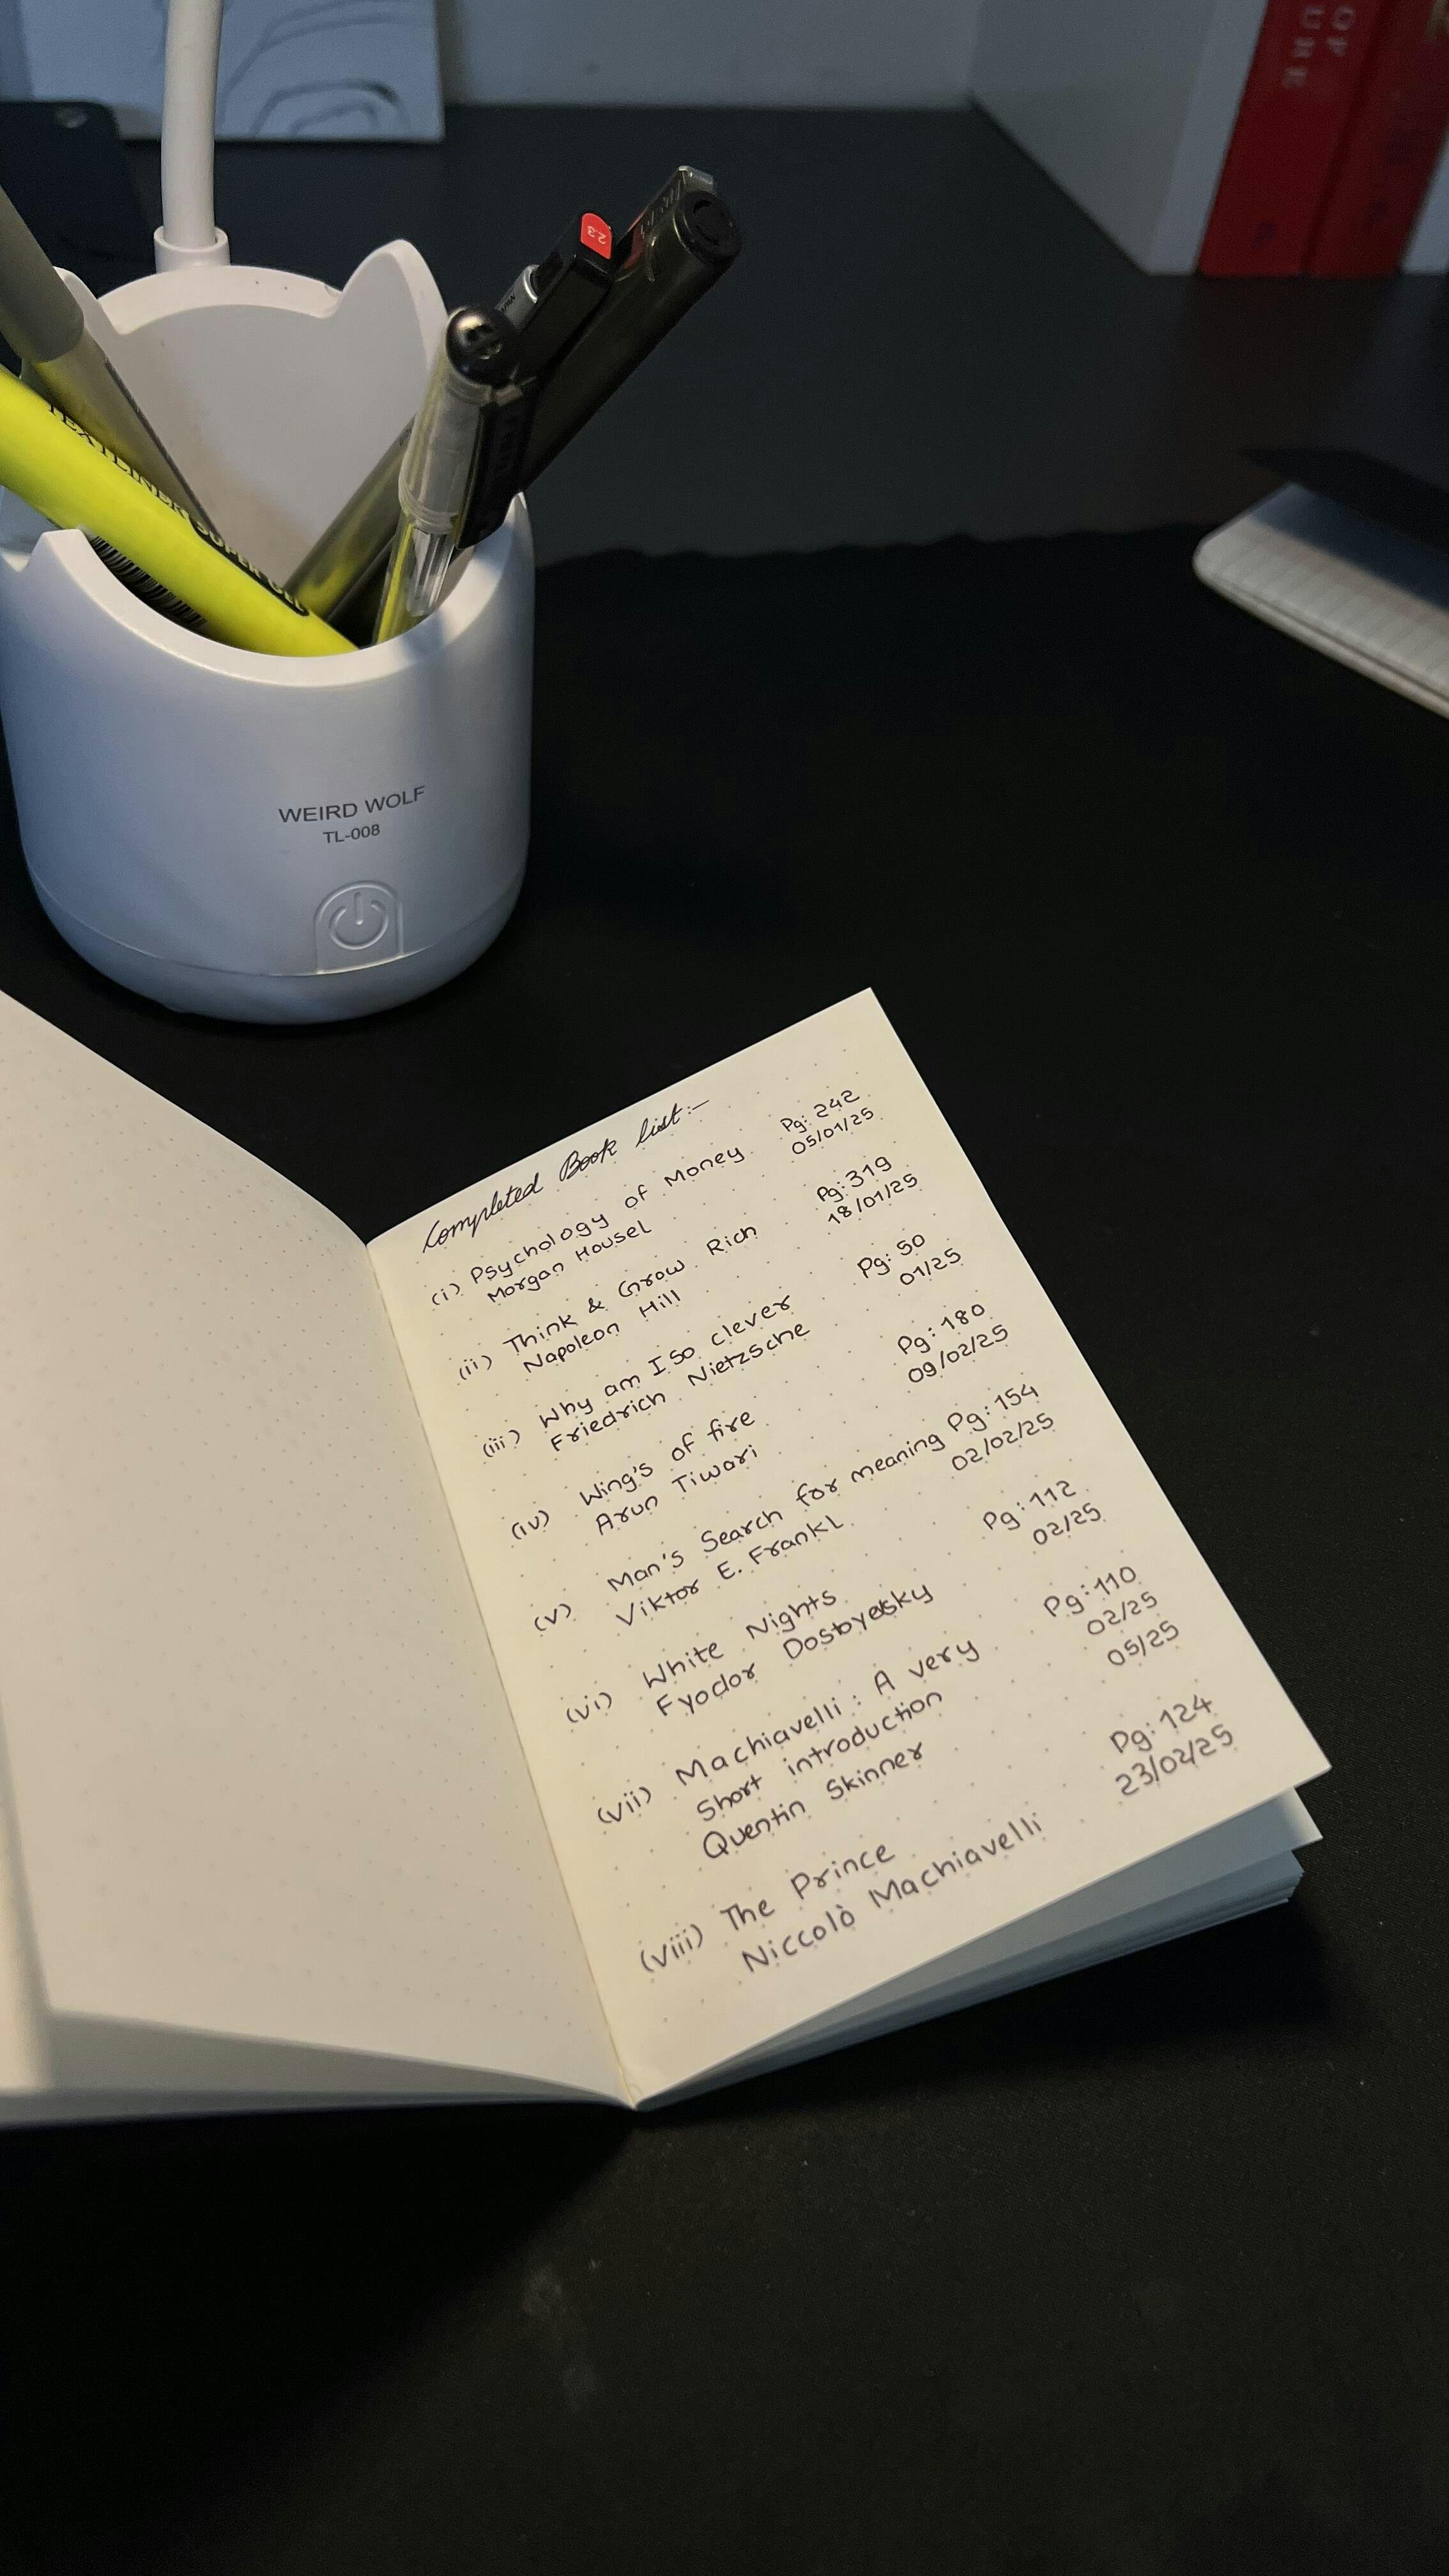 OF
URE
23
TEXTLINER SUPER GEL
WEIRD WOLF
TL-008
Completed Book list:-
(i) Psychology of Money Pg: 242
Morgan Housel 05/01/25
(ii) Think & Grow Rich Pg: 319
Napoleon Hill 18/01/25
(iii) Why am I so clever Pg: 50
Friedrich Nietzsche 01/25
(iv) Wing's of fire Pg: 180
Arun Tiwari 09/02/25
(v) Man's Search for meaning Pg: 154
Viktor E. Frankl 02/02/25
(vi) White Nights Pg: 112
Fyodor Dostoyevsky 02/25
(vii) Machiavelli: A very Pg: 110
Short introduction 02/25
Quentin Skinner 05/25
(viii) The Prince Pg: 124
Niccolò Machiavelli 23/02/25